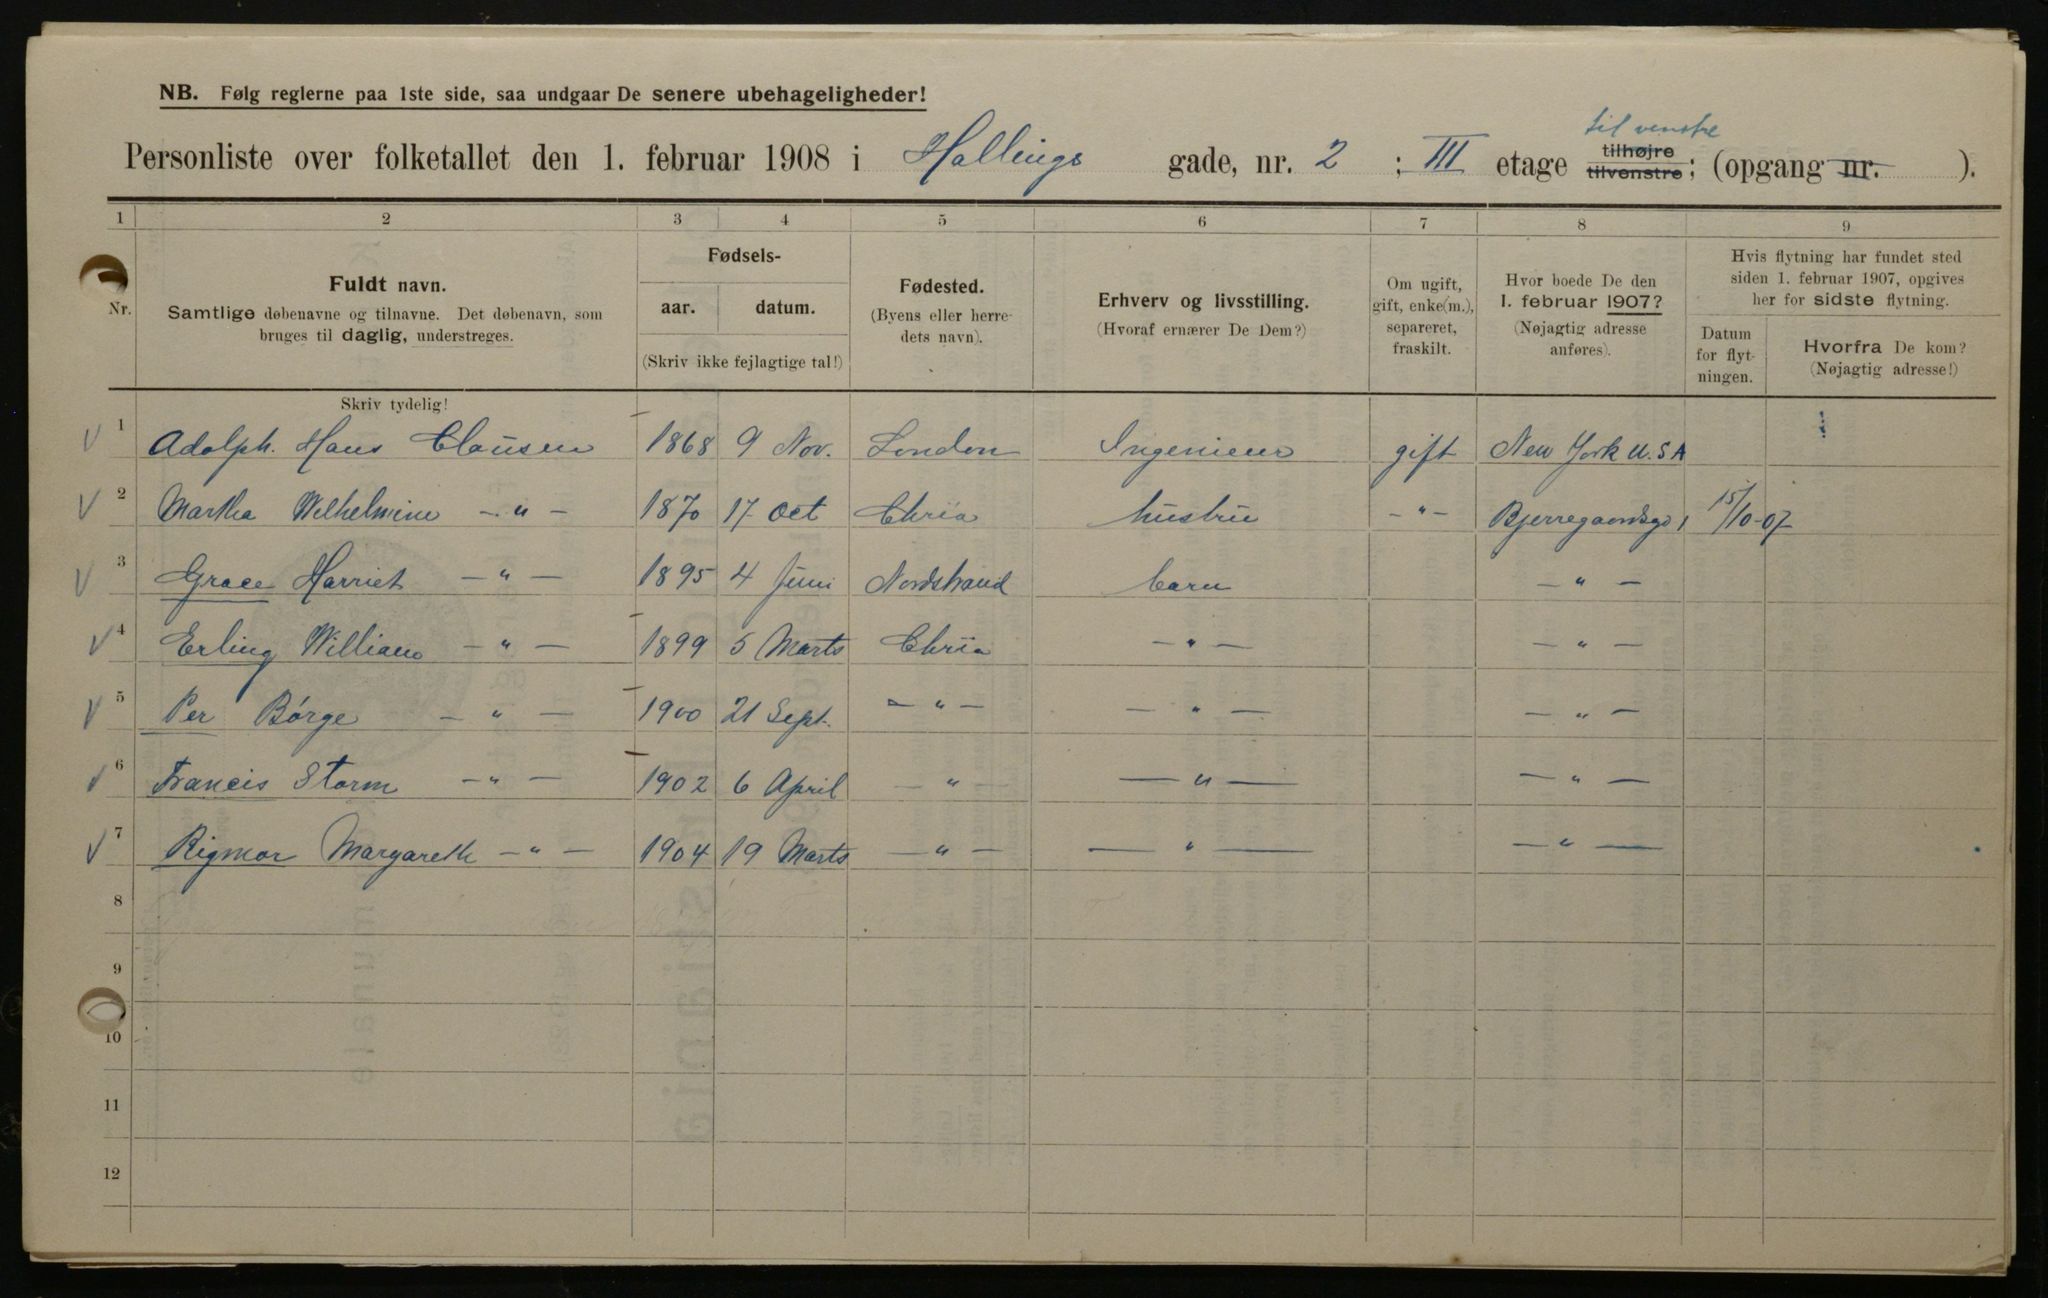 NB. Følg reglerne paa 1ste side, saa undgaar De senere ubehageligheder!
til venstre
Personliste over folketallet den 1. februar 1908 i Hallings gade, nr. 2 ; III etage tilhøjre tilvenstre; (opgang nr. ).
1 2 3 4 5 6 7 8 9
Nr.
Fuldt navn.
Samtlige døbenavne og tilnavne. Det døbenavn, som
bruges til daglig, understreges.
Fødsels-
aar. datum.
(Skriv ikke fejlagtige tal!)
Fødested.
(Byens eller herre-
dets navn).
Erhverv og livsstilling.
(Hvoraf ernærer De Dem?)
Om ugift,
gift, enke(m.),
separeret,
fraskilt.
Hvor boede De den
1. februar 1907?
(Nøjagtig adresse
anføres).
Hvis flytning har fundet sted
siden 1. februar 1907, opgives
her for sidste flytning.
Datum
for flyt-
ningen.
Hvorfra De kom?
(Nøjagtig adresse!)
Skriv tydelig!
1 Adolph. Hans Clausen 1868 9 Nov. London Ingeniør gift New York U.S.A
2 Martha Wilhelmine — " — 1870 17 Oct Chria hustru — " — Bjerregaardsgd 1 15/10-07
3 Grace Harriet — " — 1895 4 Juni Nordstrand barn — " —
4 Erling William — " — 1899 5 Marts Chria — " — — " —
5 Per Børge — " — 1900 21 Sept. — " — — " — — " —
6 Francis Storm — " — 1902 6 April — " — — " — — " —
7 Rigmor Margareth — " — 1904 19 Marts — " — — " — — " —
8
9
10
11
12